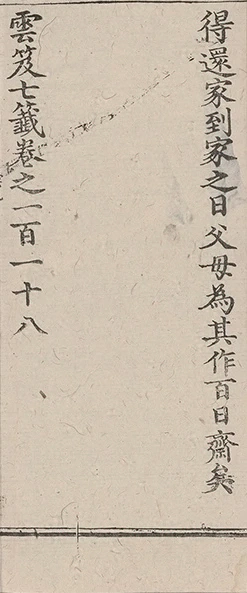 得還家到家之日父母為其作百日齋矣
雲笈七籤卷之一百一十八